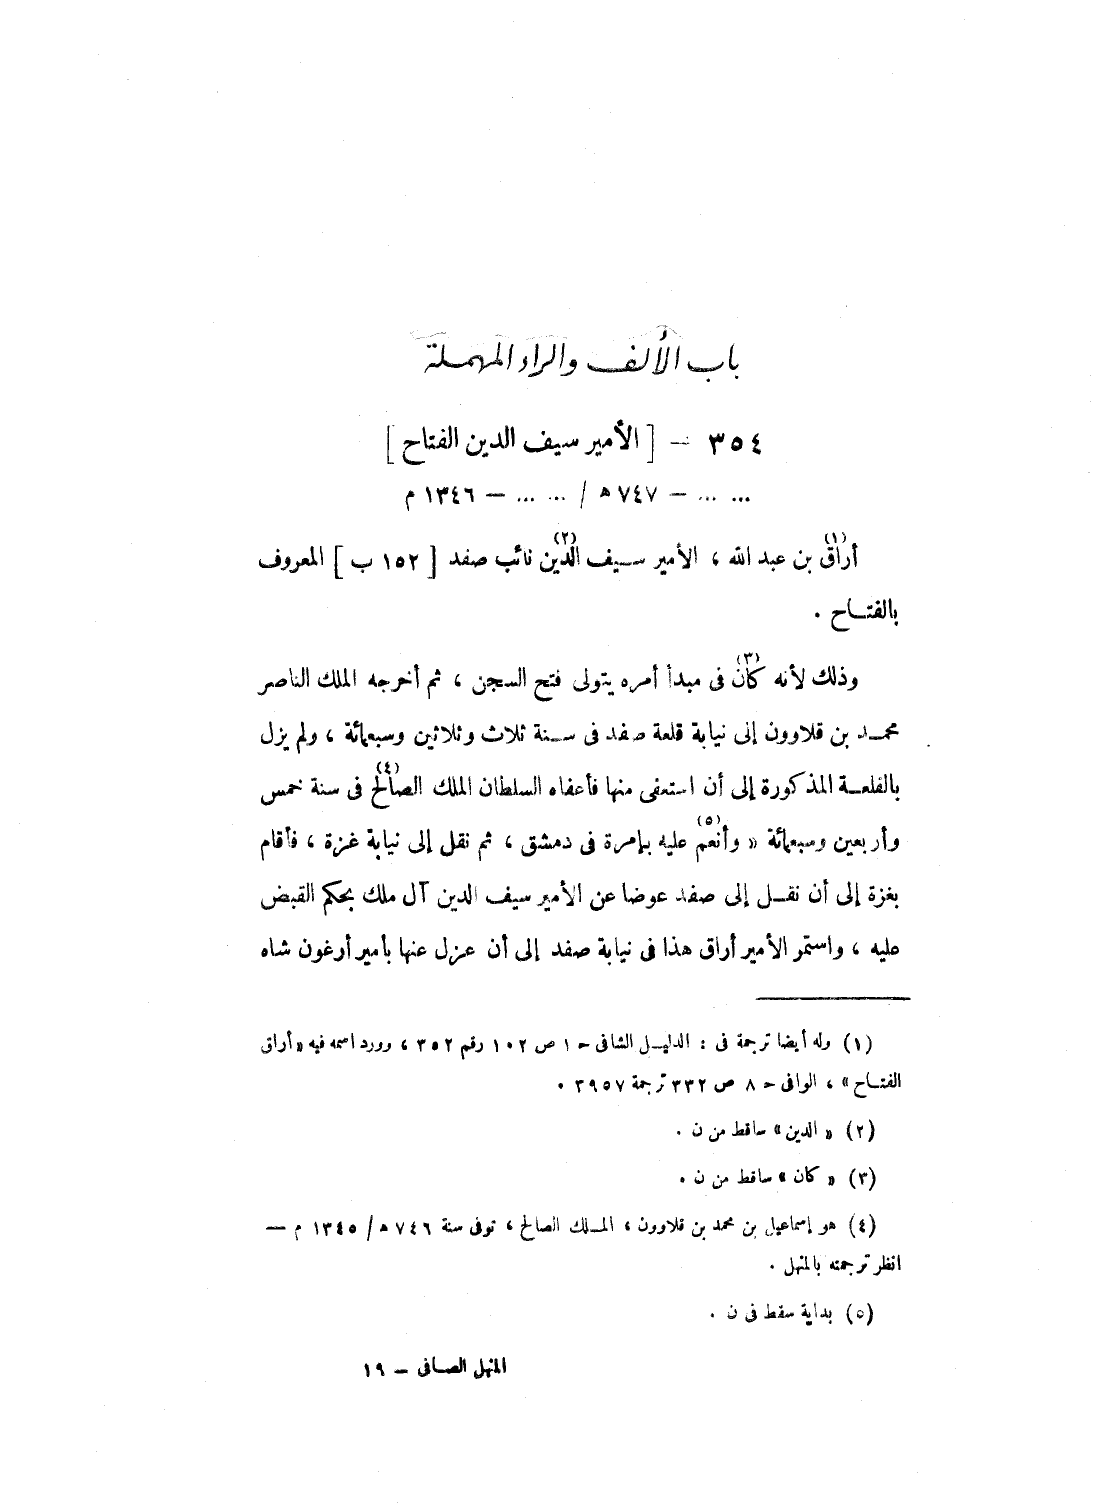 باب الألف والراء المهملة
٣٥٤ – [ الأمير سيف الدين الفتاح ]
... ... – ٧٤٧ ه / ... ... – ١٣٤٦ م
أراق (١) بن عبد الله ، الأمير سيف الدين (٢) نائب صفد [ ١٥٢ ب ] المعروف
بالفتاح .
وذلك لأنه كان (٣) فى مبدأ أمره يتولى فتح السجن ، ثم أخرجه الملك الناصر
محمد بن قلاوون إلى نيابة قلعة صفد فى سنة ثلاث وثلاثين وسبعمائة ، ولم يزل
بالقلعة المذكورة إلى أن استعفى منها فأعفاه السلطان الملك الصالح (٤) فى سنة خمس
وأربعين وسبعمائة « وأنعم (٥) عليه بإمرة فى دمشق ، ثم نقل إلى نيابة غزة ، فأقام
بغزة إلى أن نقل إلى صفد عوضا عن الأمير سيف الدين آل ملك بحكم القبض
عليه ، واستمر الأمير أراق هذا فى نيابة صفد إلى أن عزل عنها بأمير أرغون شاه
(١) وله أيضا ترجمة فى : الدليل الشافى ح ١ ص ١٠٢ رقم ٣٥٢ ، وورد اسمه فيه « أراق
الفتاح » ، الوافى ح ٨ ص ٣٣٢ ترجمة ٣٩٥٧ .
(٢) « الدين » ساقط من ن .
(٣) « كان » ساقط من ن .
(٤) هو إسماعيل بن محمد بن قلاوون ، الملك الصالح ، توفى سنة ٧٤٦ ه / ١٣٤٥ م –
انظر ترجمته بالمنهل .
(٥) بداية سقط فى ن .
المنهل الصافى – ١٩